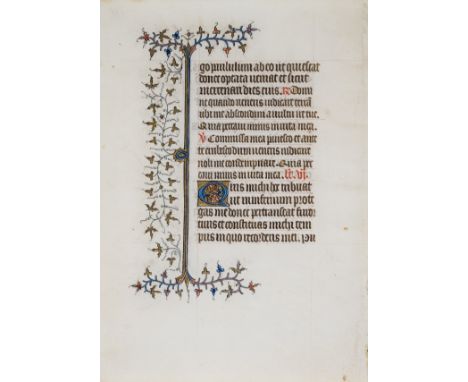 go paululum ab eo ut quiescat
donec optata veniat et sicut
mercenarii dies eius. R Domi
ne quando veneris iudicare terrā
ubi me abscondam a vultu ire tue.
Quia peccavi nimis in vita mea.
V Commissa mea pavesco et ante
te erubesco dum veneris iudicare
noli me condempnare. Quia pec
cavi nimis in vita mea.
Quis michi hoc tribuat
ut in infernum prote
gas me donec pertranseat furor
tuus et constituas michi tem
pus in quo recorderis mei.